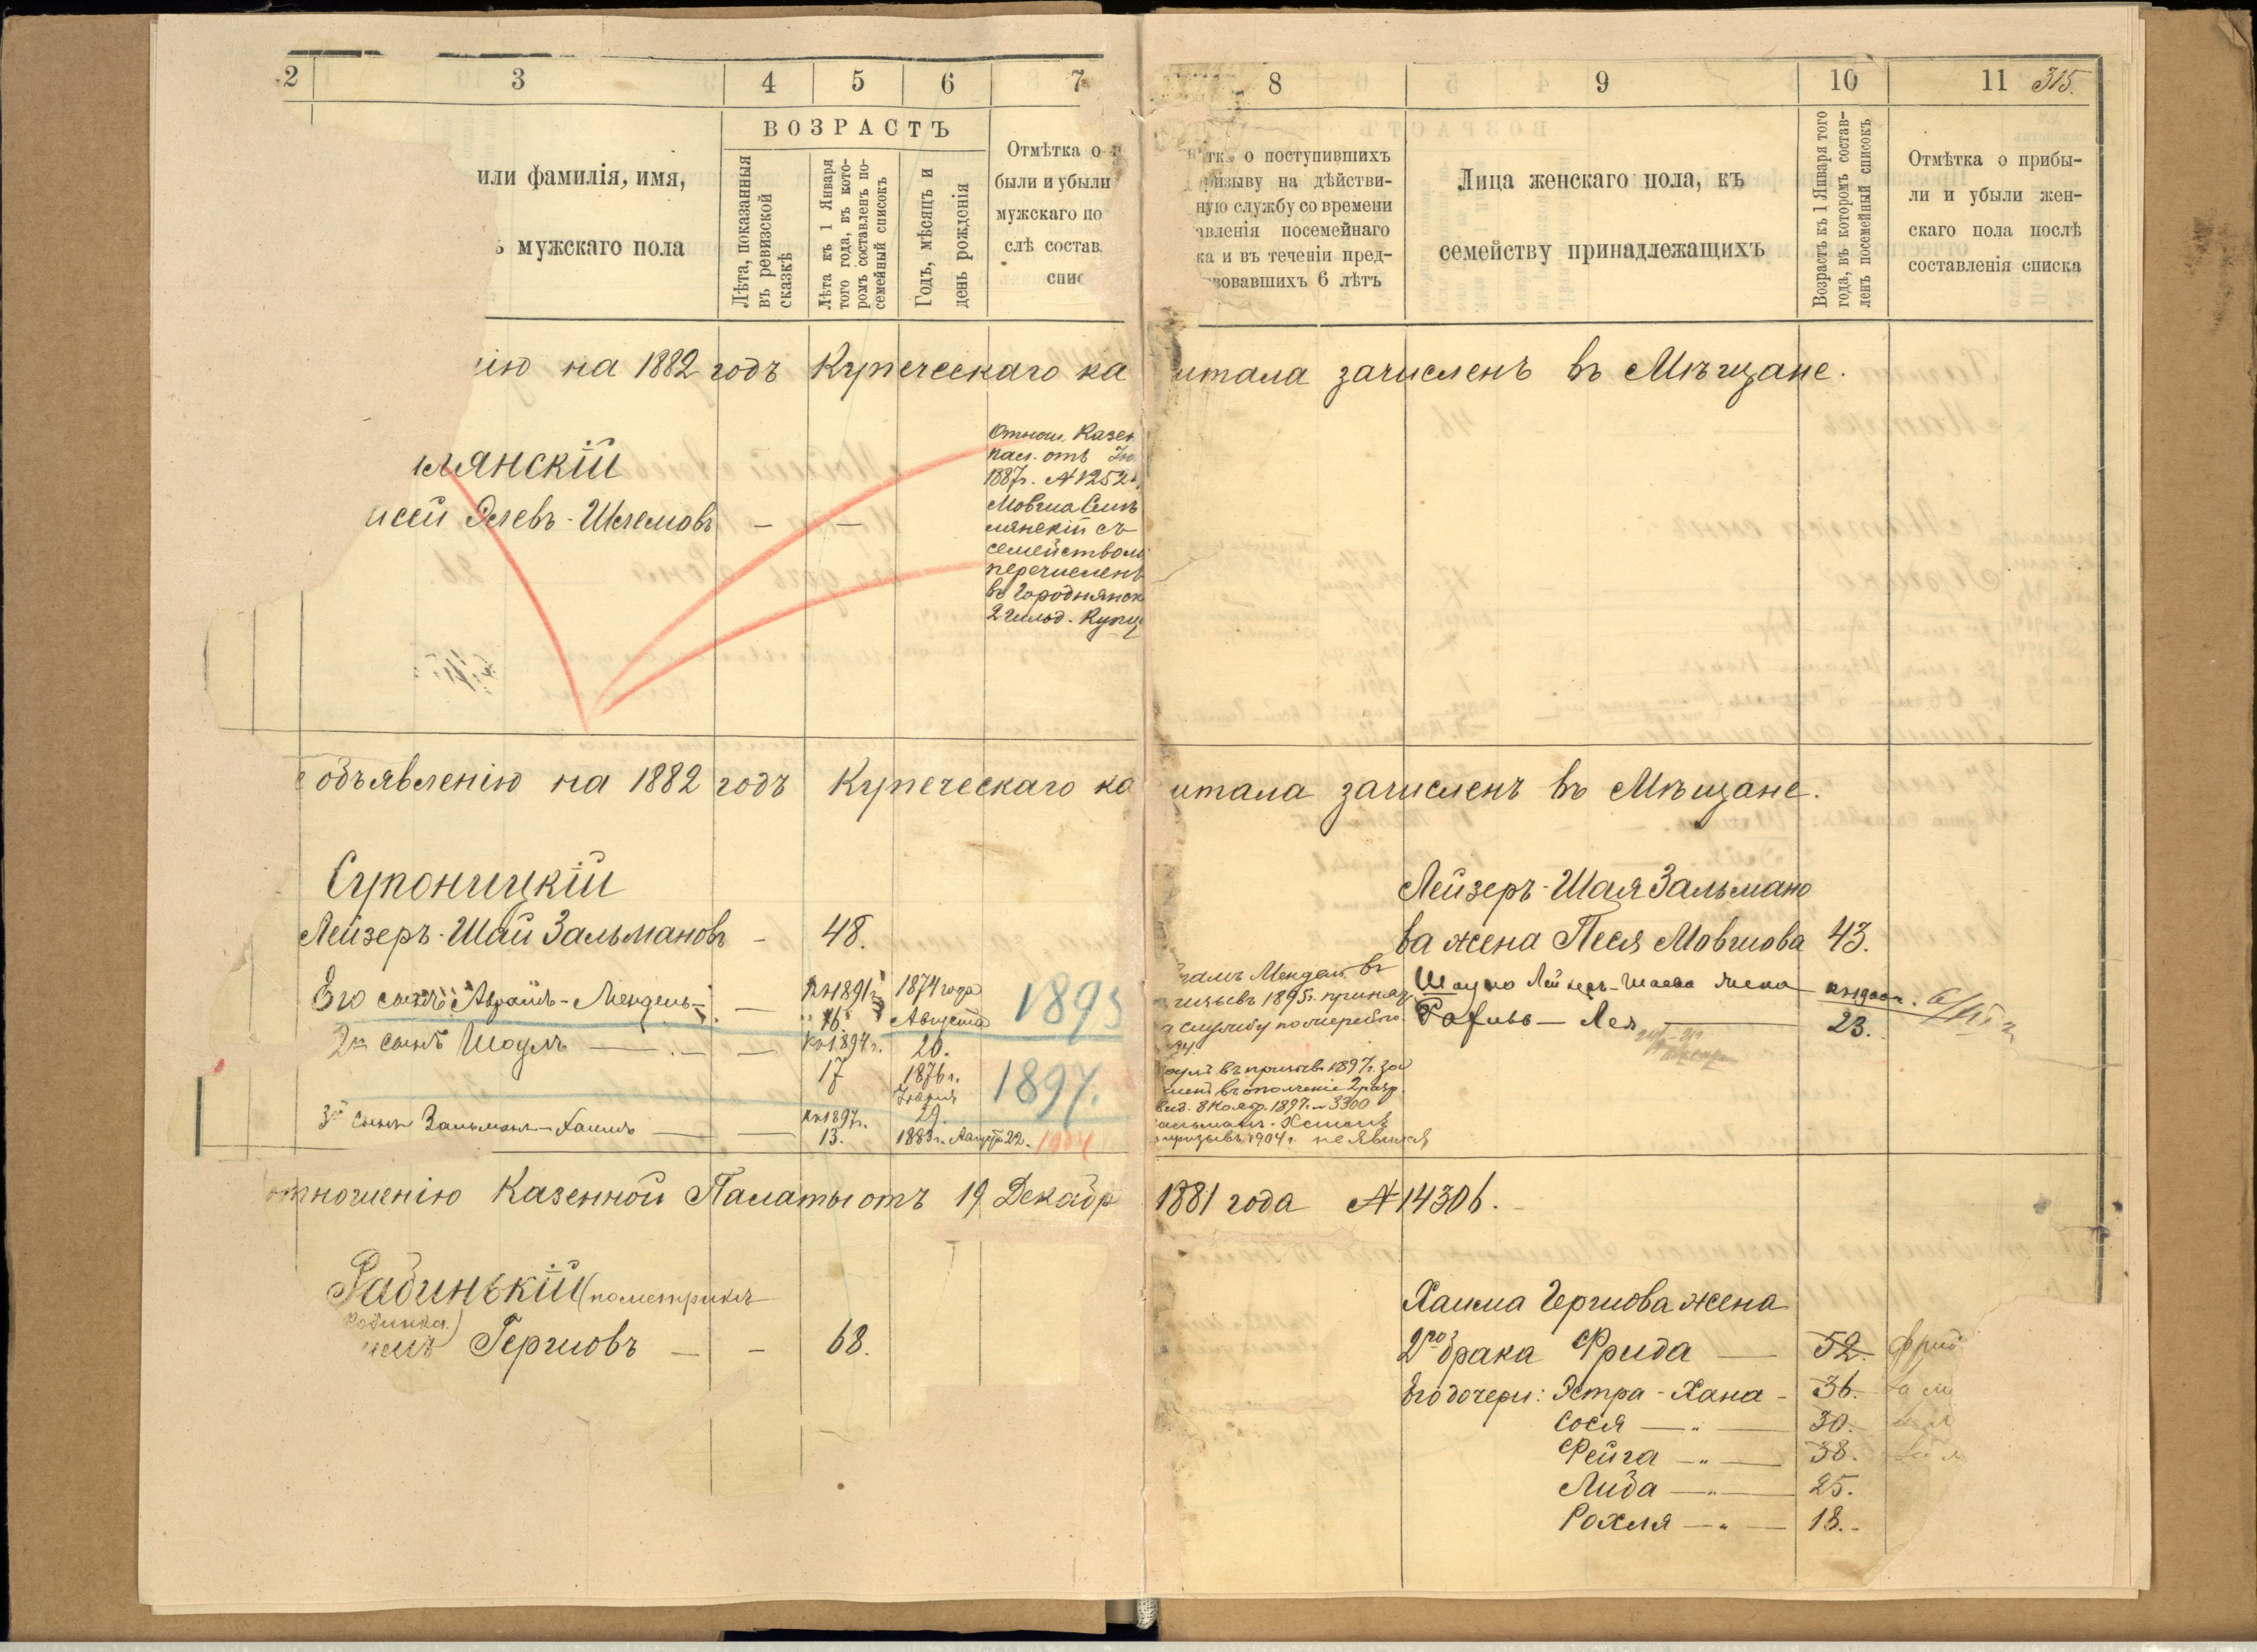 2 3 4 5 6 7 8 9 10 11 315.
или фамилія, имя,
мужскаго пола
ВОЗРАСТЪ
Лѣта, показанныя
въ ревизской
сказкѣ
Лѣта къ 1 Января
того года, въ кото-
ромъ составленъ по-
семейный списокъ
Годъ, мѣсяцъ и
день рожденія
Отмѣтка о
были и убыли
мужскаго по
слѣ состав
спис
о поступившихъ
призыву на дѣйстви-
ную службу со времени
авленія посемейнаго
ка и въ теченіи пред-
вовавшихъ 6 лѣтъ
Лица женскаго пола, къ
семейству принадлежащихъ
Возрастъ къ 1 Января того
года, въ которомъ состав-
ленъ посемейный списокъ
Отмѣтка о прибы-
ли и убыли жен-
скаго пола послѣ
составленія списка
ію на 1882 годъ Купеческаго ка итала зачисленъ въ Мѣщане.
лянскій
исей Элевъ-Шлемовъ — —
Отнош. Казен
пал. отъ
1887г. №
Мовша Смѣ
лянскій съ
семействомъ
перечисленъ
въ Городнянск
2 гильд. Купц
объявленію на 1882 годъ Купеческаго ка итала зачисленъ въ Мѣщане.
Супоницкій
Лейзеръ-Шай Зальмановъ - 48.
Его сынъ: Абрамъ-Мендель- — къ 1891г. 16 1874 года Августа 20. 1895
2й сынъ Шоулъ — — къ 1894г. 17 1876г. 29. 1897.
3й сынъ Зальманъ-Хаимъ — — къ 1897г. 13. 1883г. Августа 22. 1904
Мендель въ
1895г. принятъ
а службу по жеребью
въ призывъ 1897г. за
въ ополченіе 2 разр.
8 Нояб. 1897. № 3300
призывъ 1904г. не явился
Лейзеръ-Шая Зальмано
ва жена Песя Мовшова 43.
Шоула Лейзеръ-Шаева жена
Лея — 23.
отношенію Казенной Палаты отъ 19 Декабр 1881 года №14306.
Рабинькій (по метрикѣ
Рабинка)
Гершовъ — - 68.
Хаима Гершова жена
2го брака Фрида — 52. Фрид
Его дочери: Эстра-Хана - 36.
Сося — " — 30.
Фейга — " — 38.
Лида — " — 25.
Рохля — " — 18.